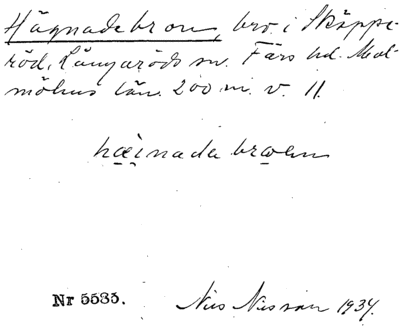 Hägnadebron, bro i Skäppe-
röd, Långaröds sn. Färs hd. Mal-
möhus län. 200 m. v. 11.
hæinada broen
Nr 5535.
Nils Nilsson 1934.